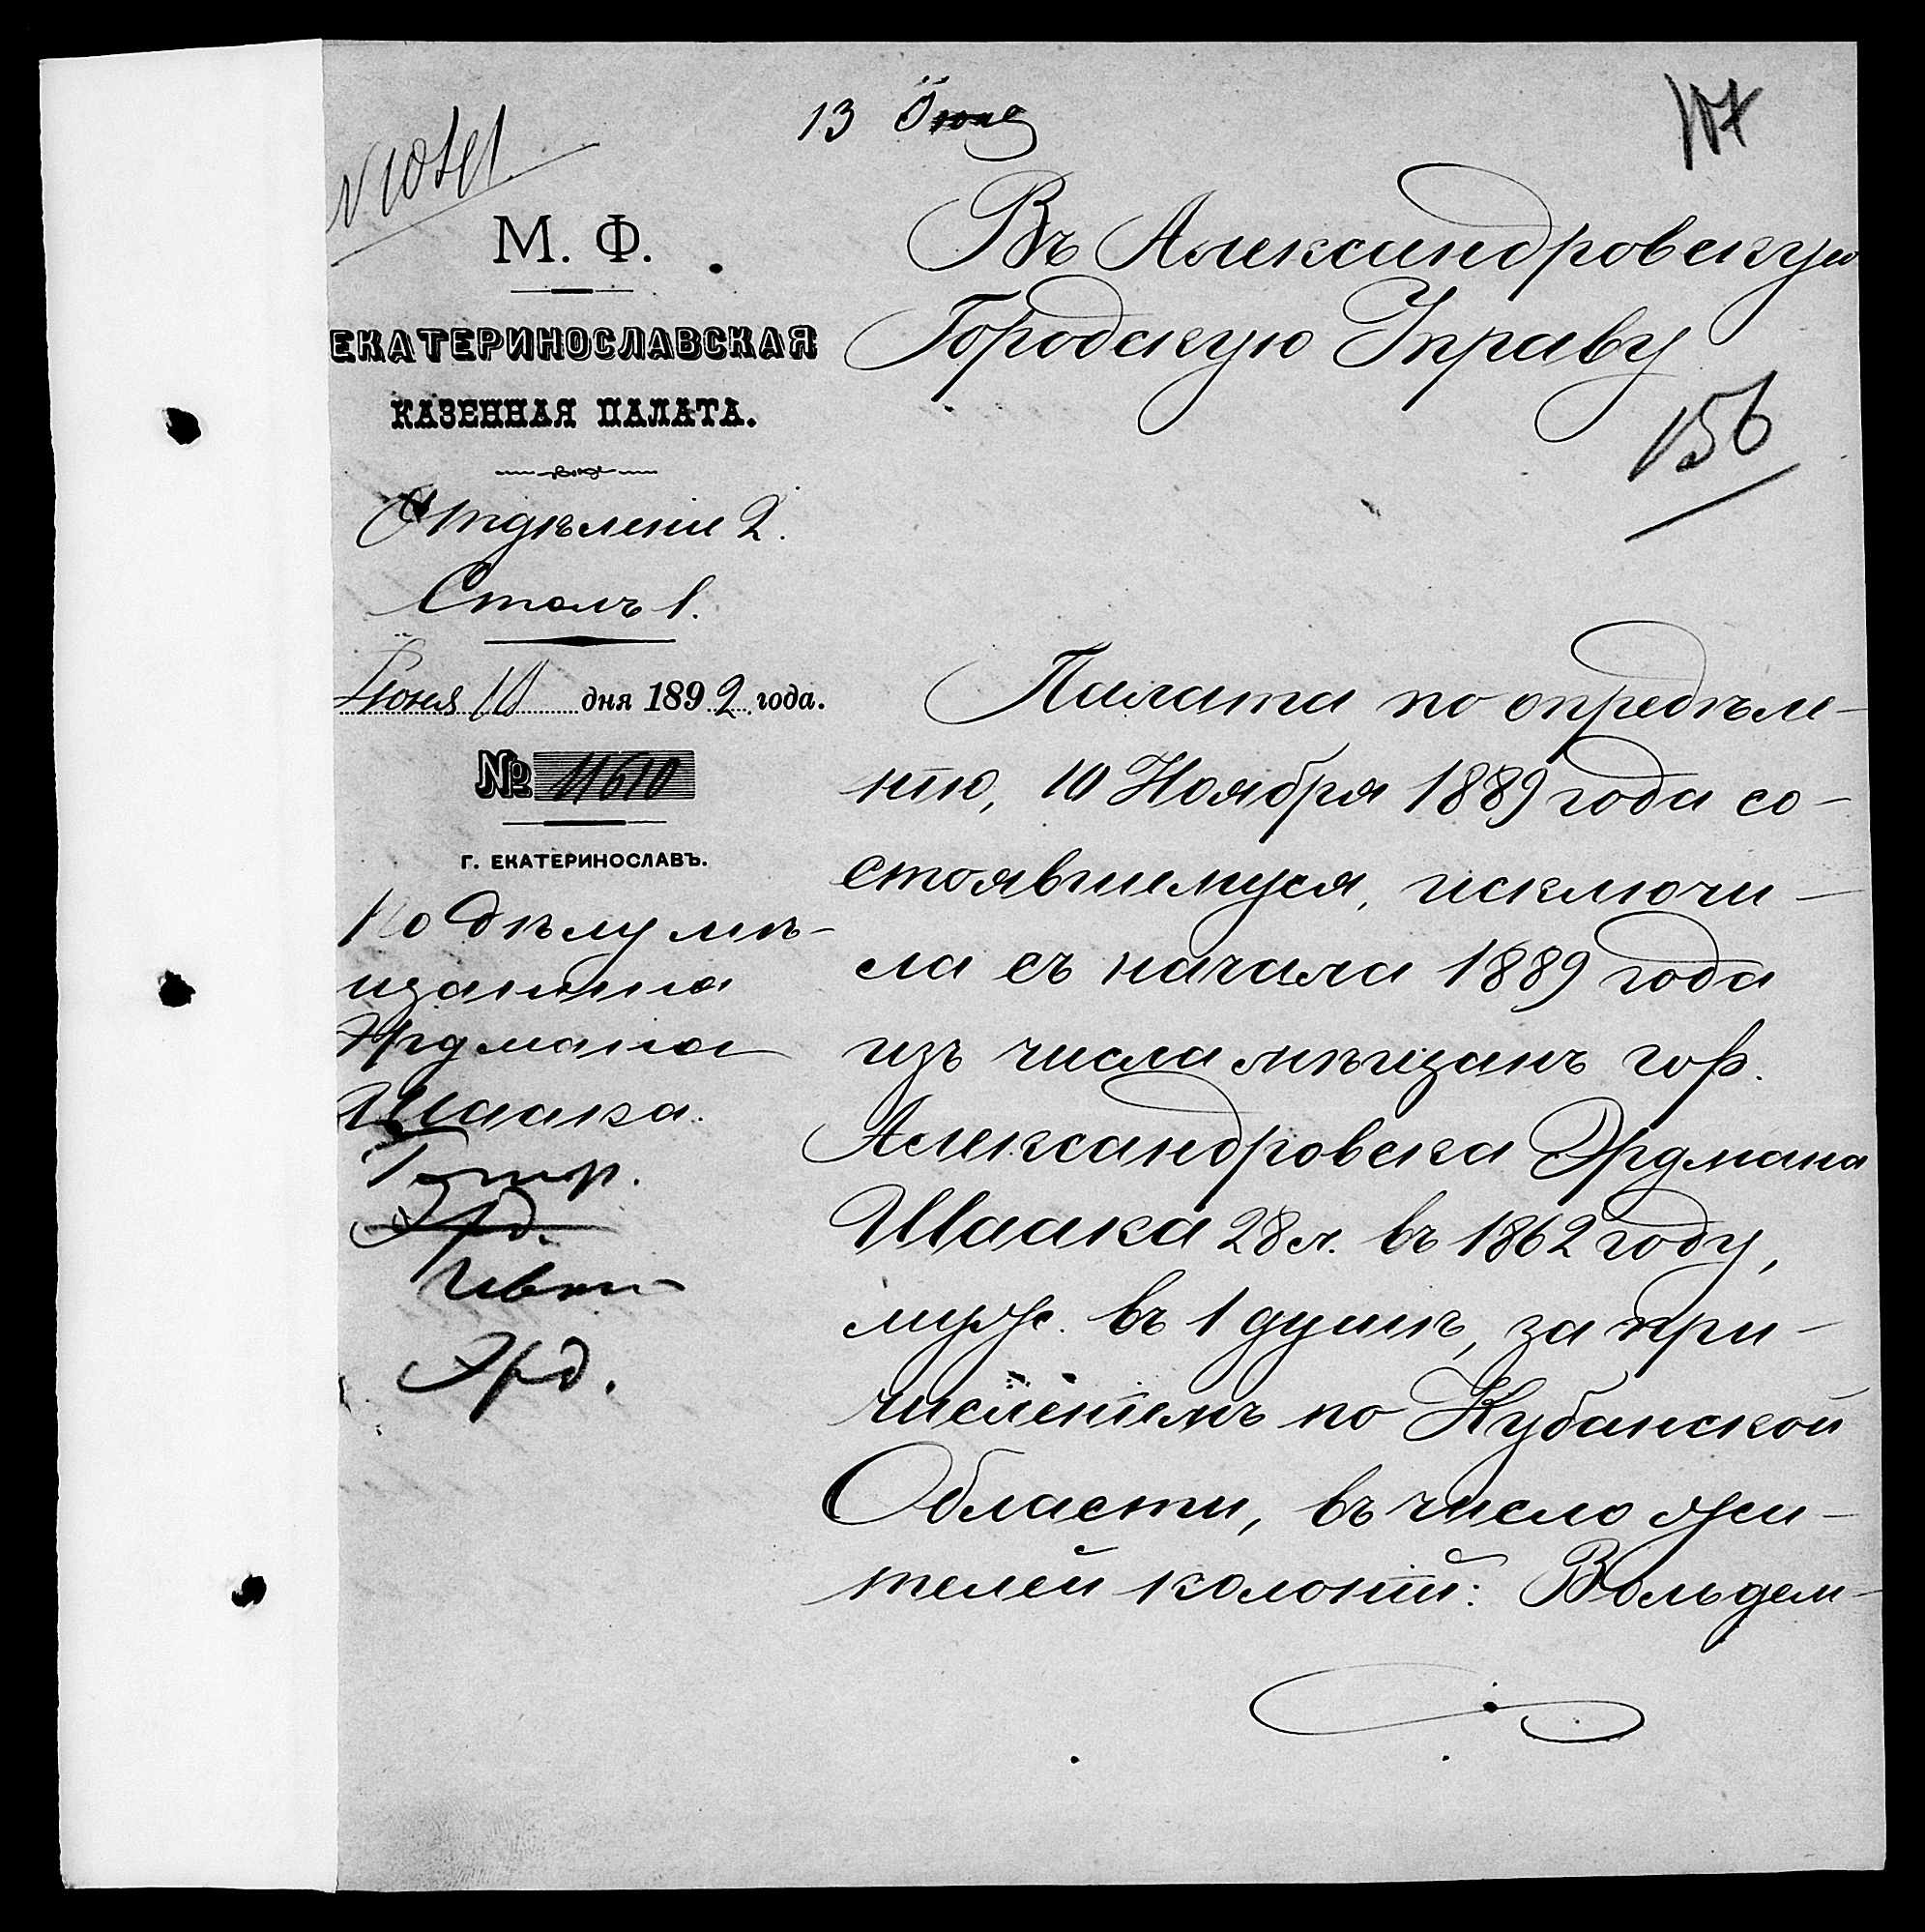 13 Июня
107
М. Ф.
ЕКАТЕРИНОСЛАВСКАЯ
КАЗЕННАЯ ПАЛАТА.
Отдѣленіе 2.
Столъ 1.
Іюня 10 дня 1892 года.
№ 11610
Г. ЕКАТЕРИНОСЛАВЪ.
По дѣлу мѣ-
щанина
Эрдмана
Шаака.
Эрд.
Эрд.
Въ Александровскую
Городскую Управу
156
Палата по опредѣле-
нію, 10 Ноября 1889 года со-
стоявшемуся, исключи-
ла съ начала 1889 года
изъ числа мѣщанъ гор.
Александровска Эрдмана
Шаака 28 л. въ 1862 году,
муж. въ 1 душѣ, за при-
численіемъ по Кубанской
Области, въ число жи-
телей колоніи: Вольдем-